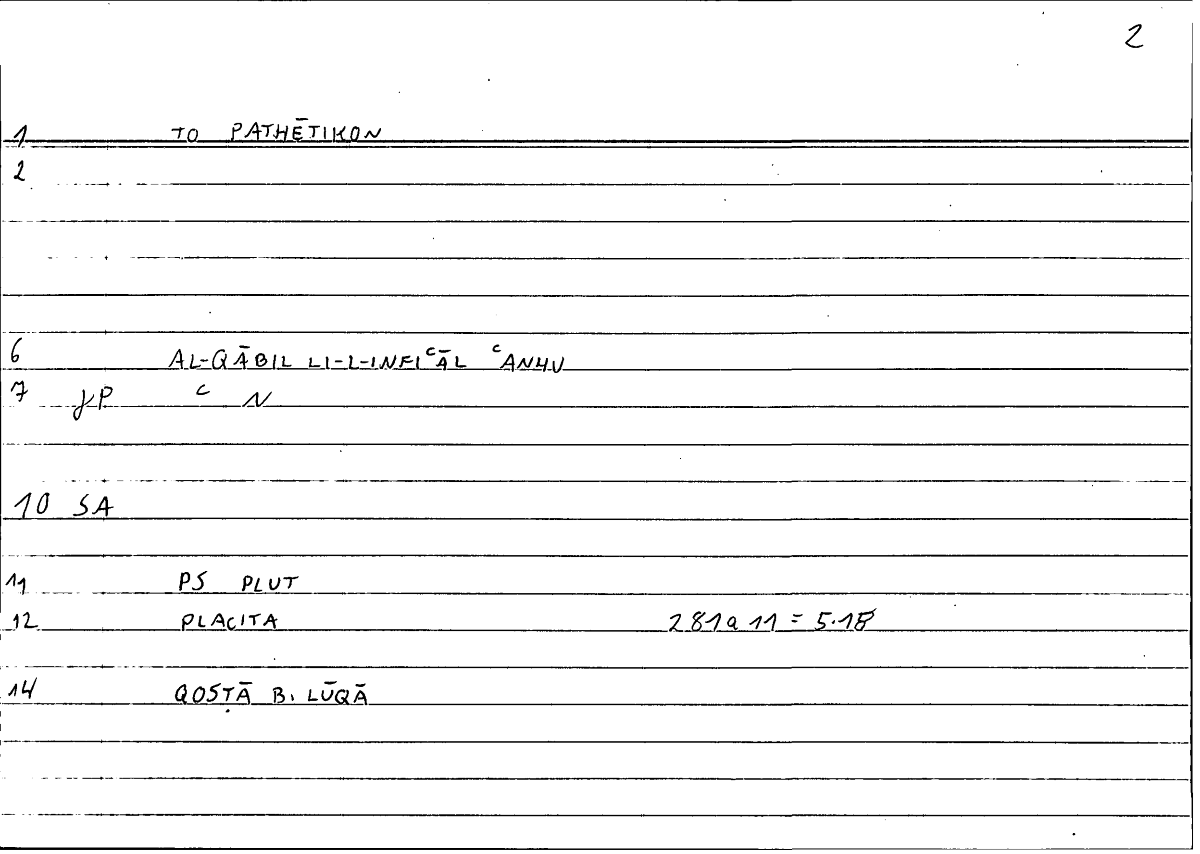 2
1 TO PATHĒTIKON
2
6 AL-QĀBIL LI-L-INFIʿĀL ʿANHU
7 ʿ N
10 SA
11 PS PLUT
12 PLACITA 281a 11 = 5.18
14 QOSṬĀ B. LŪQĀ